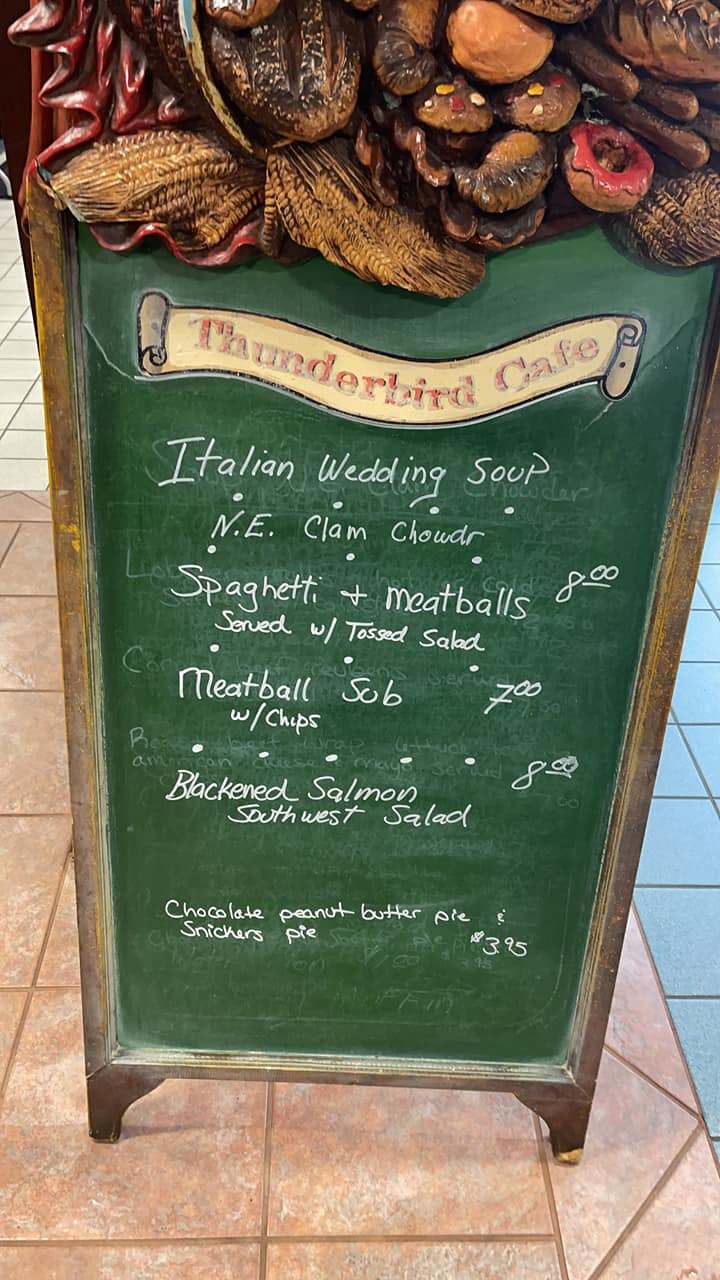 Thunderbird Cafe
Italian Wedding Soup
N.E. Clam Chowdr
Spaghetti + meatballs 8.00
Served w/ Tossed Salad
Meatball Sub 7.00
w/Chips
Blackened Salmon 8.00
Southwest Salad
Chocolate peanut butter pie &
Snickers pie $3.95